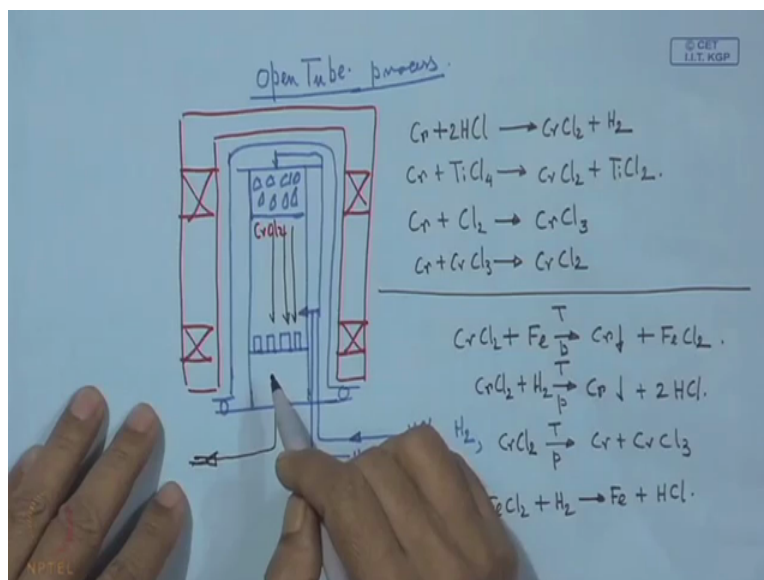 © CET
I.I.T. KGP
Open Tube process.
Cr + 2HCl → CrCl₂ + H₂
Cr + TiCl₄ → CrCl₂ + TiCl₂.
Cr + Cl₂ → CrCl₃
Cr + CrCl₃ → CrCl₂
CrCl₂
CrCl₂ + Fe T→p Cr↓ + FeCl₂.
CrCl₂ + H₂ T→p Cr↓ + 2HCl.
H₂,
CrCl₂ T→p Cr + CrCl₃
FeCl₂ + H₂ → Fe + HCl.
NPTEL